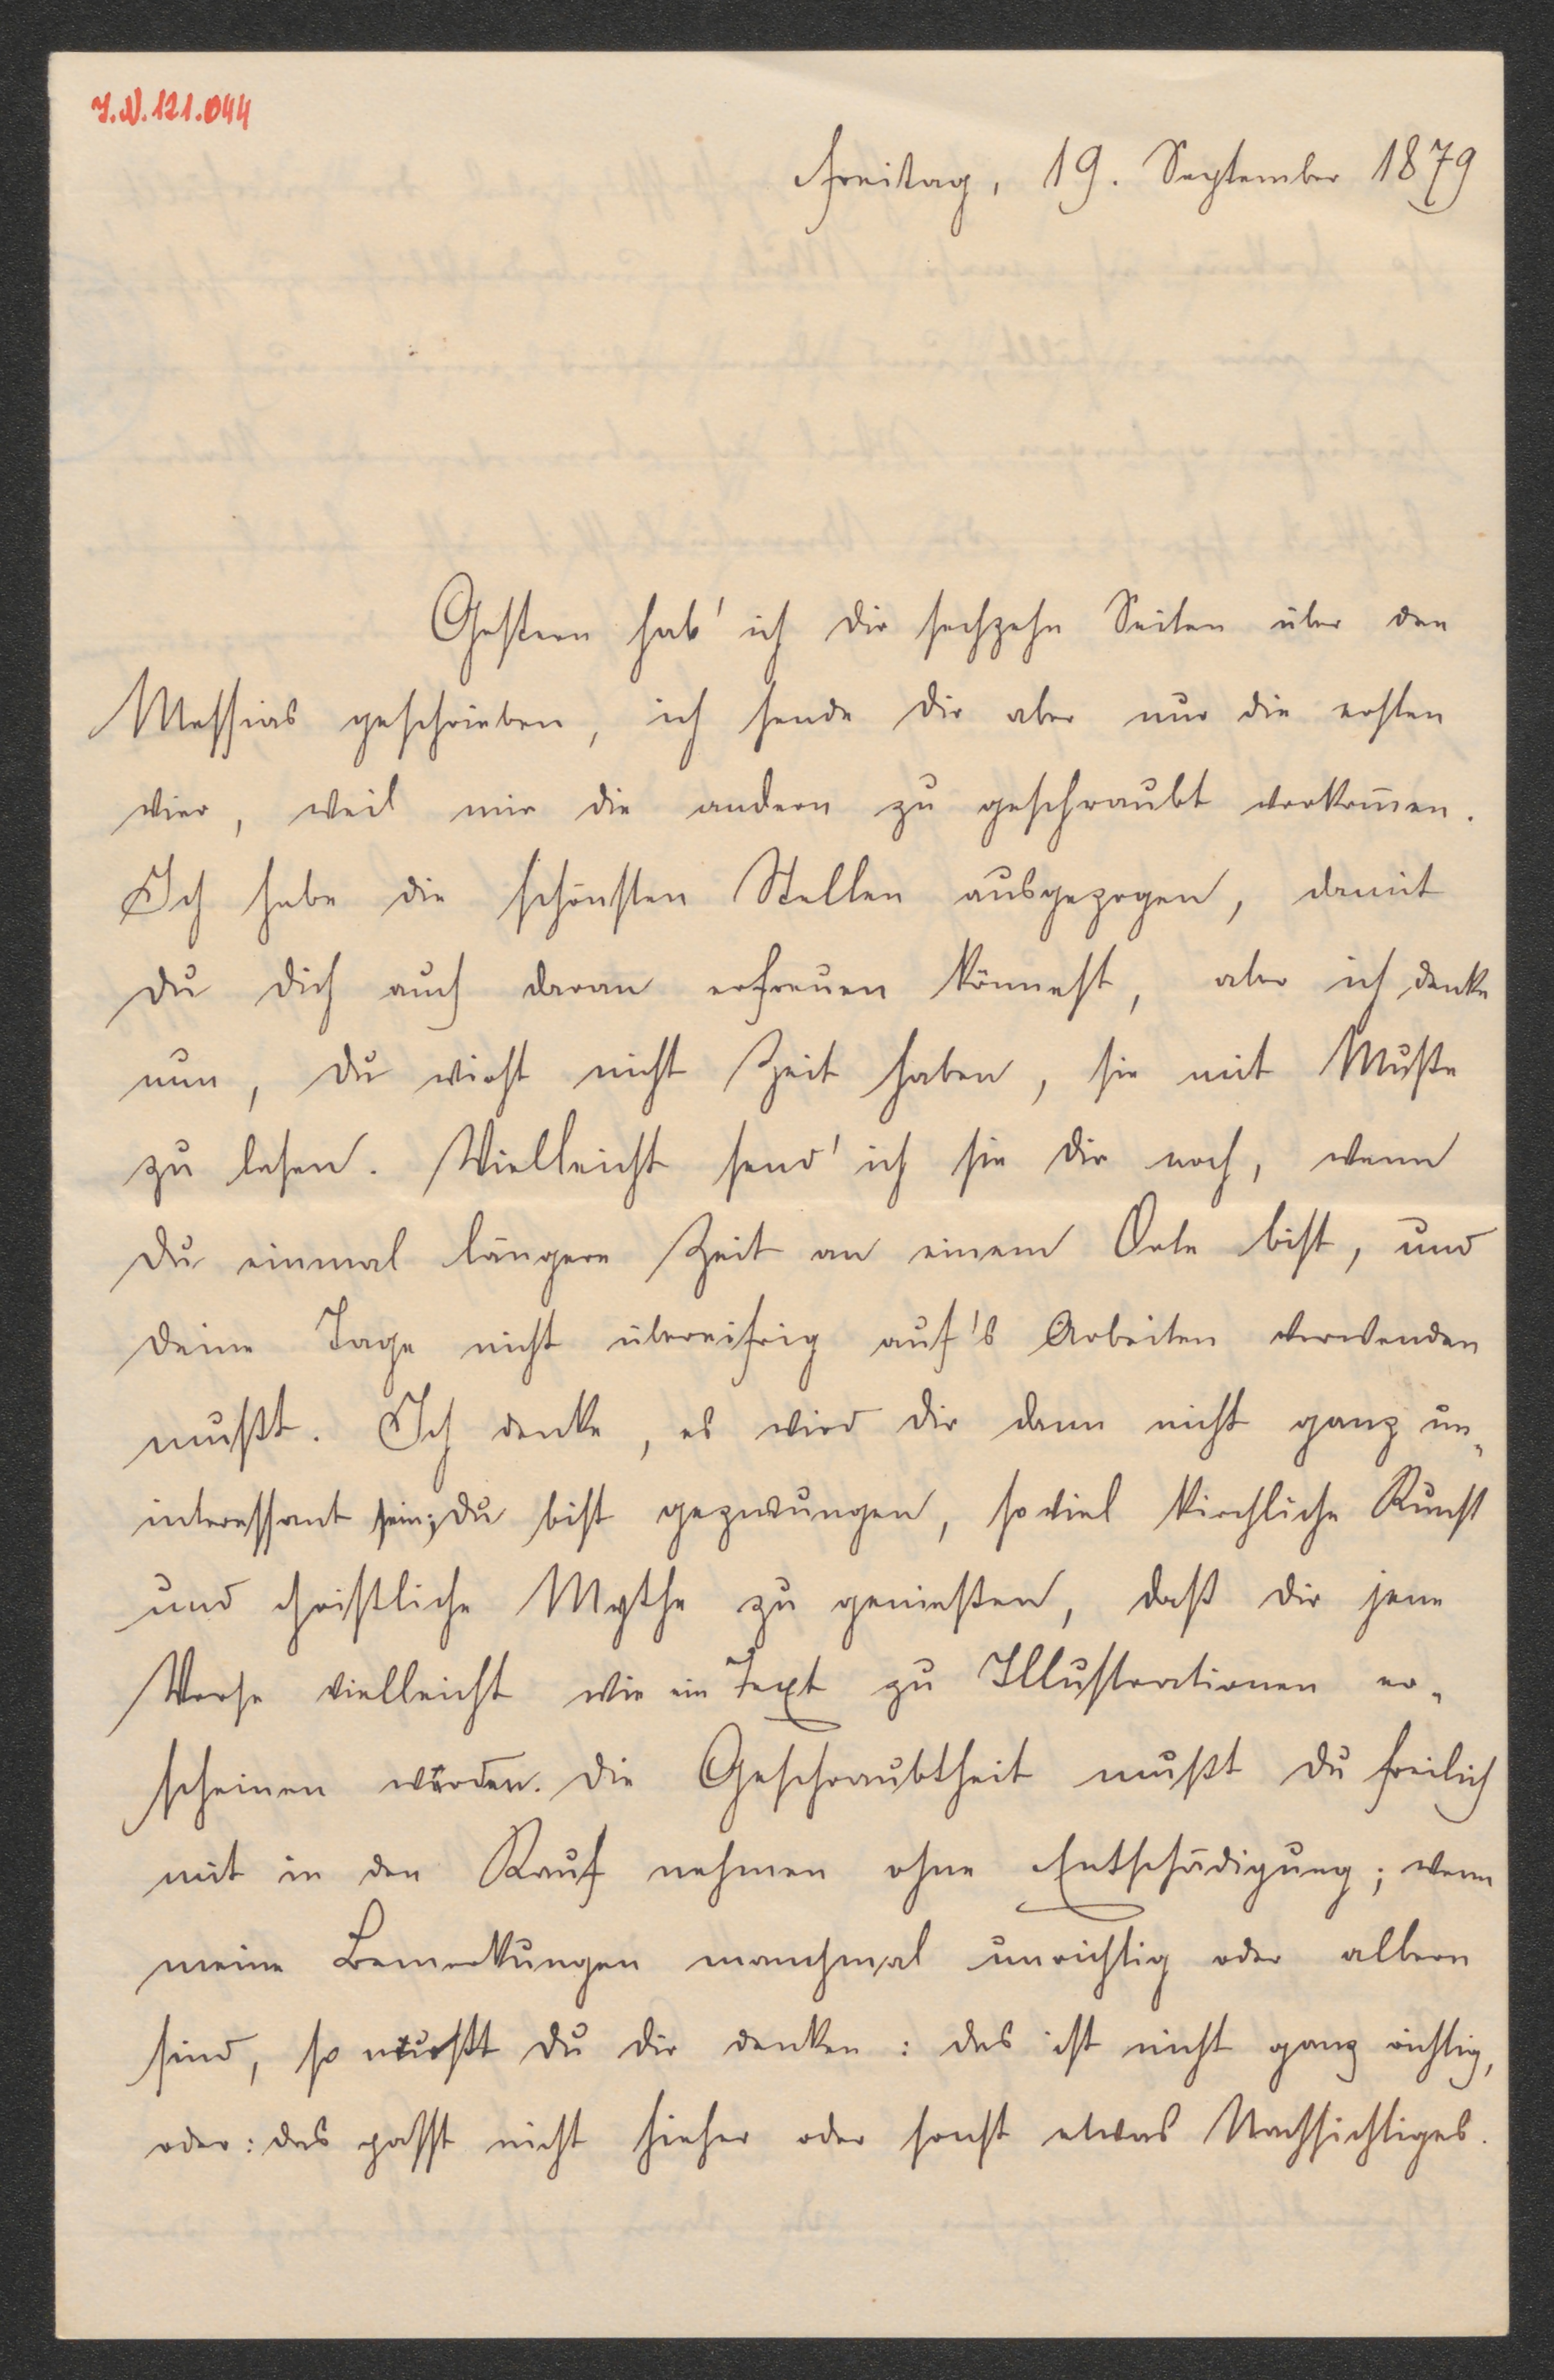 J.N. 121.044
Freitag, 19. September 1879
Gestern hab' ich dir sechzehn Seiten über den
Messias geschrieben, ich sende dir aber nur die ersten
vier, weil mir die andern zu geschraubt vorkom̄en.
Ich habe die schönsten Stellen ausgezogen, damit
du dich auch daran erfreuen könnest, aber ich denke
nun, du wirst nicht Zeit haben, sie mit Muße
zu lesen. Vielleicht send' ich sie dir noch, wenn
du einmal längere Zeit an einem Orte bist, und
deine Tage nicht übereifrig auf's Arbeiten verwenden
mußt. Ich denke, es wird dir dann nicht ganz un-
interessant sein; du bist gezwungen, so viel kirchliche Kunst
und christliche Mythe zu genießen, daß dir jene
Verse vielleicht wie ein Text zu Illustrationen er-
scheinen würden. Die Geschraubtheit mußt du freilich
mit in den Kauf nehmen ohne Entschädigung; wenn
meine Bemerkungen manchmal unrichtig oder albern
sind, so mußt du dir denken: das ist nicht ganz richtig,
oder: das passt nicht hieher oder sonst etwas Nachsichtiges.